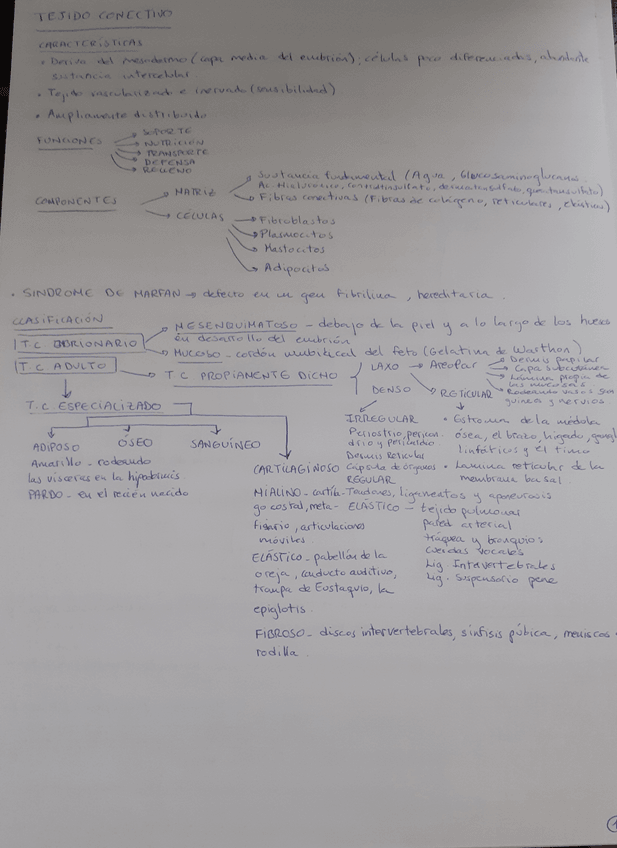 TEJIDO CONECTIVO
CARACTERÍSTICAS
• Deriva del mesodermo (capa media del embrión); células poco diferenciadas, abundante
sustancia intercelular.
• Tejido vascularizado e inervado (sensibilidad)
• Ampliamente distribuido
FUNCIONES
SOPORTE
NUTRICIÓN
TRANSPORTE
DEFENSA
RELLENO
COMPONENTES
MATRIZ
Sustancia fundamental (Agua, Glucosaminoglucanos
Ac. Hialurónico,
Fibras conectivas (Fibras de colágeno, reticulares, elásticas)
CÉLULAS
Fibroblastos
Plasmocitos
Mastocitos
Adipocitos
• SINDROME DE MARFAN → defecto en un gen fibrilina, hereditaria.
CLASIFICACIÓN
T.C EMBRIONARIO
MESENQUIMATOSO - debajo de la piel y a lo largo de los huesos
en desarrollo del embrión
MUCOSO - cordón umbilical del feto (Gelatina de Warthon)
T.C ADULTO
T.C PROPIAMENTE DICHO
LAXO → Areolar
Dermis papilar
Capa subcutánea
Lámina propia de
las mucosas
Rodeando vasos san
guíneos y nervios.
DENSO
RETICULAR
T.C ESPECIALIZADO
ADIPOSO
ÓSEO
SANGUÍNEO
Amarillo - rodeando
las vísceras en la hipodermis
PARDO - en el recién nacido
IRREGULAR
Periostio, pericon
drio y pericardio
Dermis Reticular
Cápsula de órganos
REGULAR
Tendones, ligamentos y aponeurosis
ELÁSTICO - tejido pulmonar
pared arterial
tráquea y bronquios
cuerdas vocales
Lig. Intervertebrales
Lig. Suspensorio pene
• Estroma de la médula
ósea, el bazo, hígado, gangl
linfáticos y el timo
• Lámina reticular de la
membrana basal.
CARTILAGINOSO
HIALINO - cartíla-
go costal, meta-
fisario, articulaciones
móviles.
ELÁSTICO - pabellón de la
oreja, conducto auditivo,
trompa de Eustaquio, la
epiglotis.
FIBROSO - discos intervertebrales, sínfisis púbica, meniscos
rodilla.
1